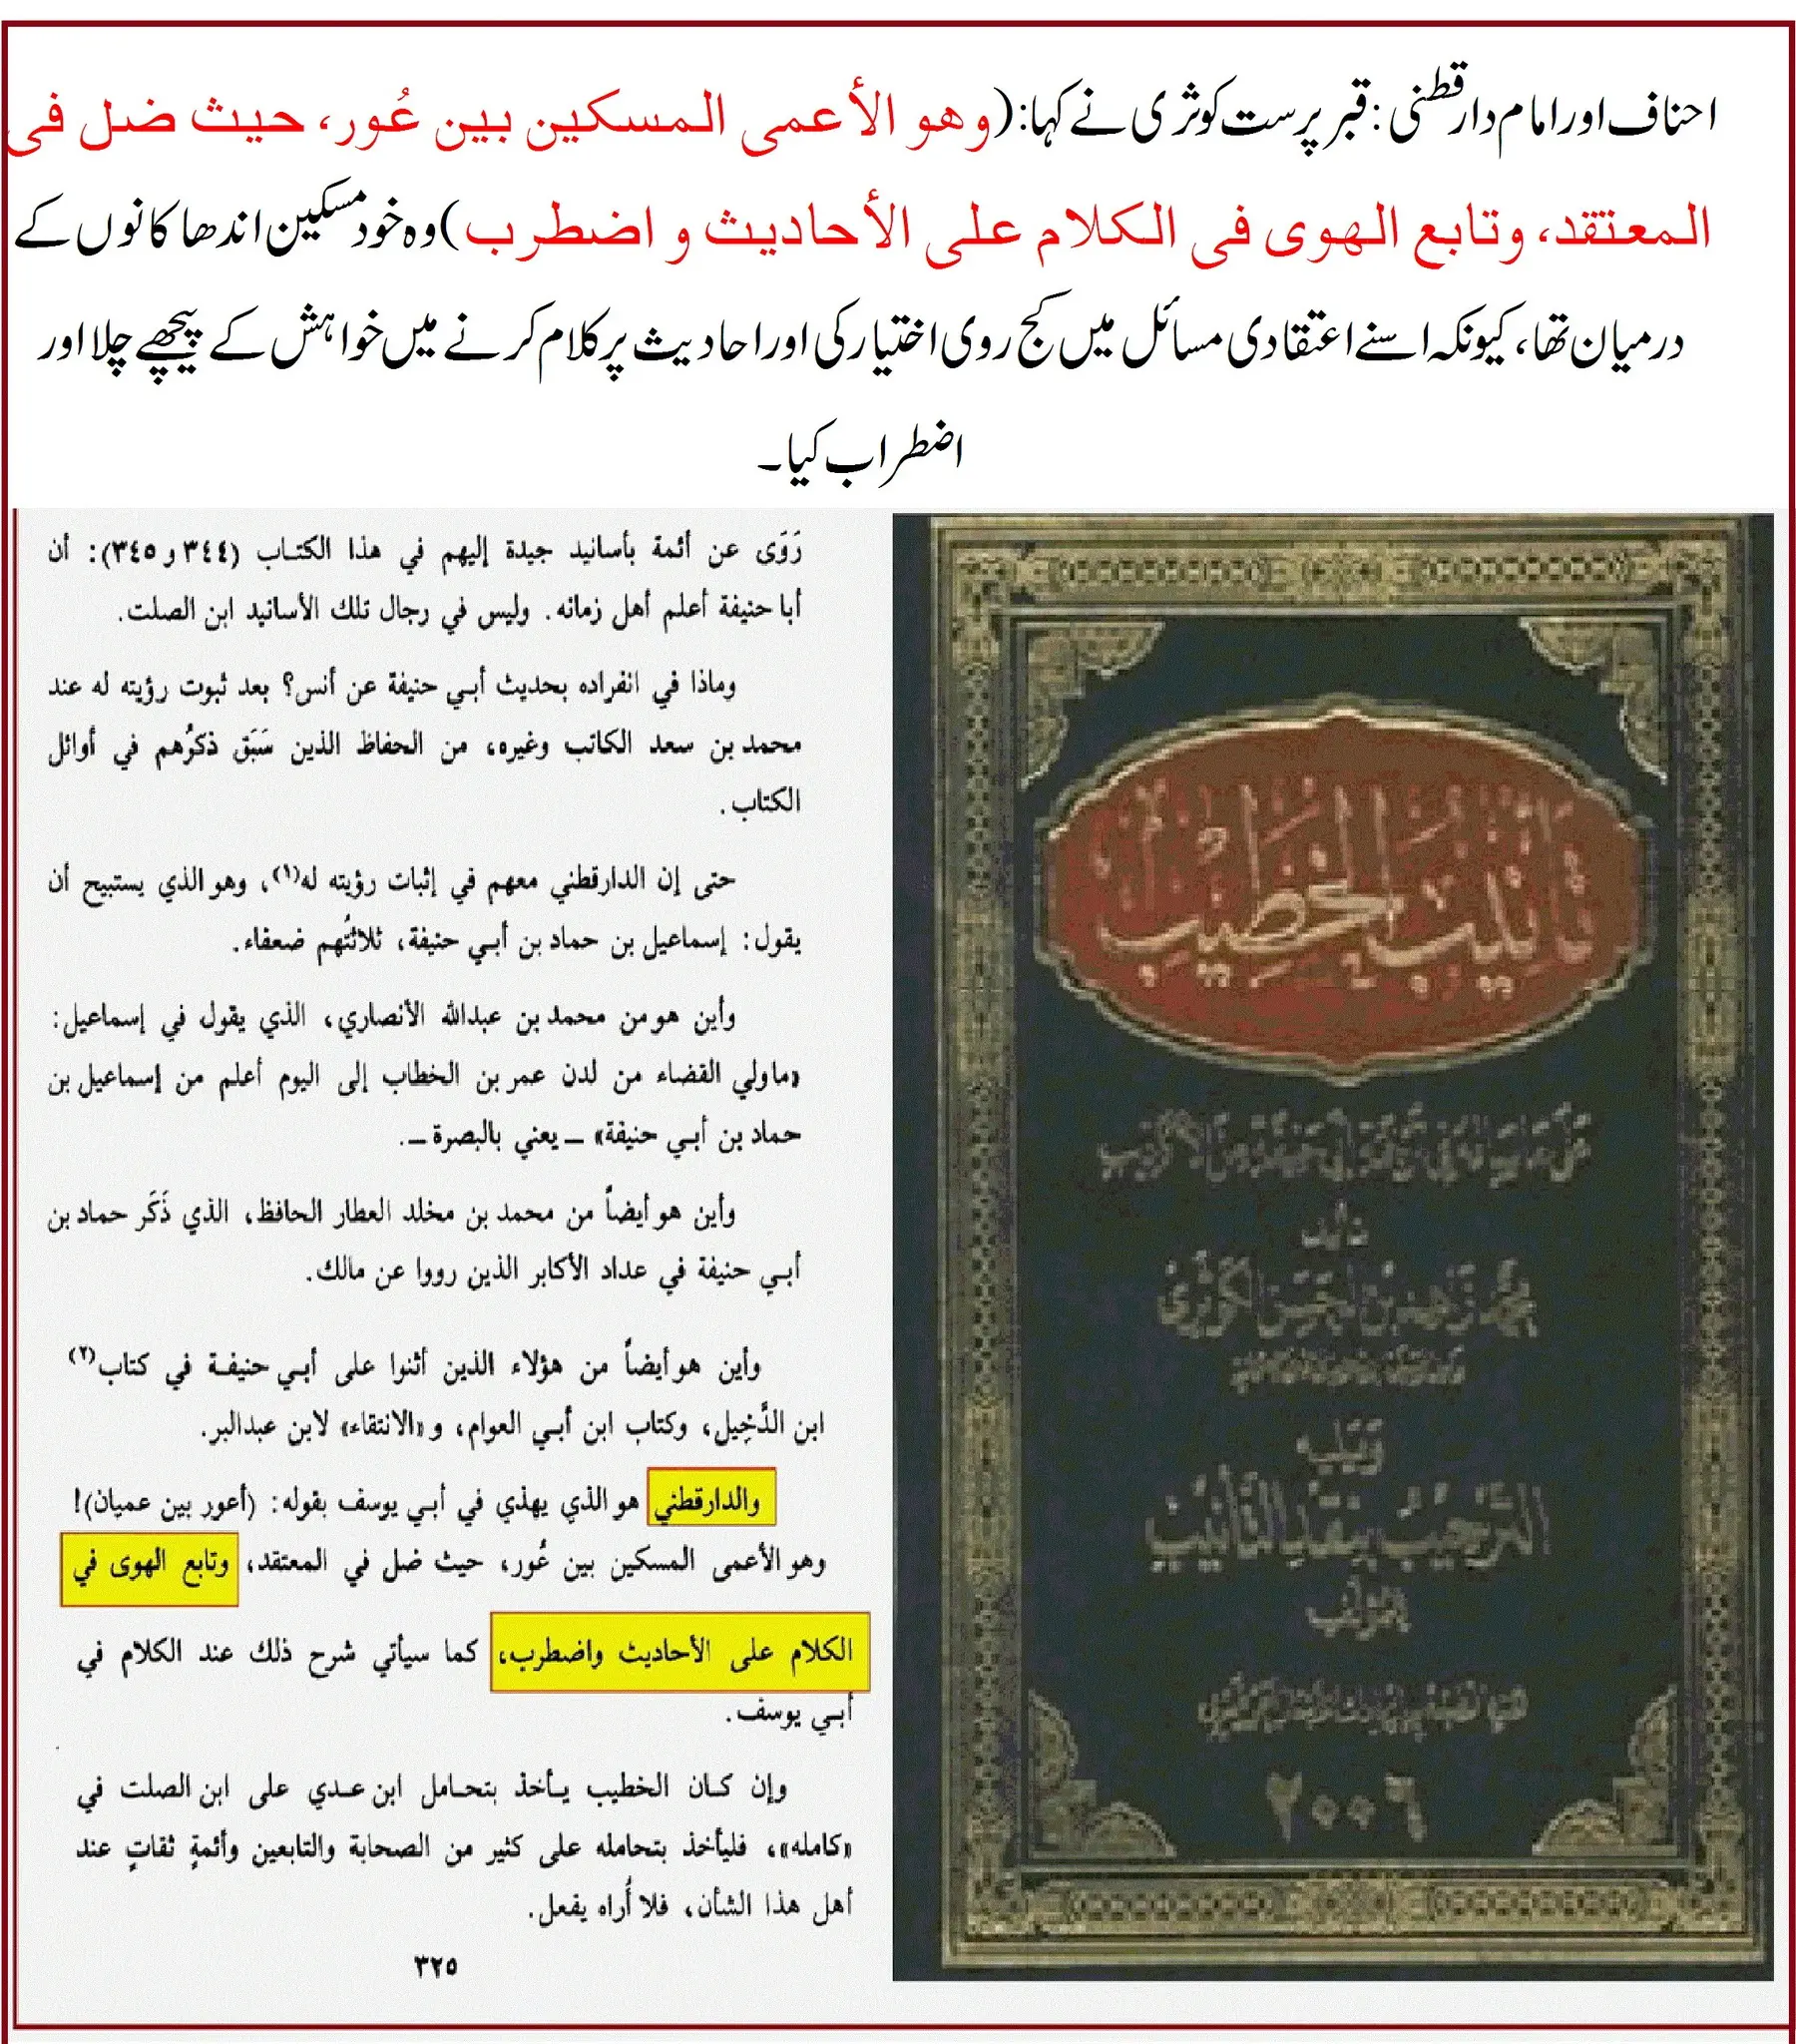 احناف اور امام دارقطنی : قبر پرست کوثری نے کہا: (وهو الأعمى المسكين بين عُور، حيث ضل فى
المعتقد، وتابع الهوى فى الكلام على الأحاديث و اضطرب) وہ خود مسکین اندھا کانوں کے
درمیان تھا، کیونکہ اسنے اعتقادی مسائل میں کج روی اختیار کی اور احادیث پر کلام کرنے میں خواہش کے پیچھے چلا اور
اضطراب کیا۔
رَوَى عن أئمة بأسانيد جيدة إليهم في هذا الكتاب (٣٤٤ و ٣٤٥): أن
أبا حنيفة أعلم أهل زمانه. وليس في رجال تلك الأسانيد ابن الصلت.
وماذا في انفراده بحديث أبي حنيفة عن أنس؟ بعد ثبوت رؤيته له عند
محمد بن سعد الكاتب وغيره، من الحفاظ الذين سَبَق ذكرُهم في أوائل
الكتاب.
حتى إن الدارقطني معهم في إثبات رؤيته له(١)، وهو الذي يستبيح أن
يقول: إسماعيل بن حماد بن أبي حنيفة، ثلاثتُهم ضعفاء.
وأين هو من محمد بن عبدالله الأنصاري، الذي يقول في إسماعيل:
«ما ولي القضاء من لدن عمر بن الخطاب إلى اليوم أعلم من إسماعيل بن
حماد بن أبي حنيفة» ــ يعني بالبصرة ــ.
وأين هو أيضاً من محمد بن مخلد العطار الحافظ، الذي ذَكَر حماد بن
أبي حنيفة في عداد الأكابر الذين رووا عن مالك.
وأين هو أيضاً من هؤلاء الذين أثنوا على أبي حنيفة في كتاب(٢)
ابن الدَّخِيل، وكتاب ابن أبي العوام، و«الانتقاء» لابن عبدالبر.
والدارقطني هو الذي يهذي في أبي يوسف بقوله: (أعور بين عميان)!
وهو الأعمى المسكين بين عُور، حيث ضل في المعتقد، وتابع الهوى في
الكلام على الأحاديث واضطرب، كما سيأتي شرح ذلك عند الكلام في
أبي يوسف.
وإن كان الخطيب يأخذ بتحامل ابن عدي على ابن الصلت في
«كامله»، فليأخذ بتحامله على كثير من الصحابة والتابعين وأئمةٍ ثقاتٍ عند
أهل هذا الشأن، فلا أُراه يفعل.
٣٢٥
تأنيب الخطيب
تأليف
محمد زاهد بن الحسن الكوثري
ويليه
الترحيب بنقد التأنيب
للمؤلف
٢٠٠٦